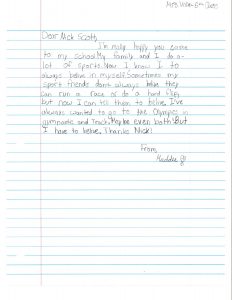 Mrs. 6th
Dear Nick Scott,
I'm really happy you came
to my school. My family and I do a-
lot of sports. Now I know I to
always belive in myself. Sometimes my
sport friends don't always belive they
can run a race or do a hard
but now I can tell them to belive. I've
always wanted to go to the Olympics in
gymnastic and Track. Maybe even both. But
I have to belive. Thanks Nick!
From,
Maddie